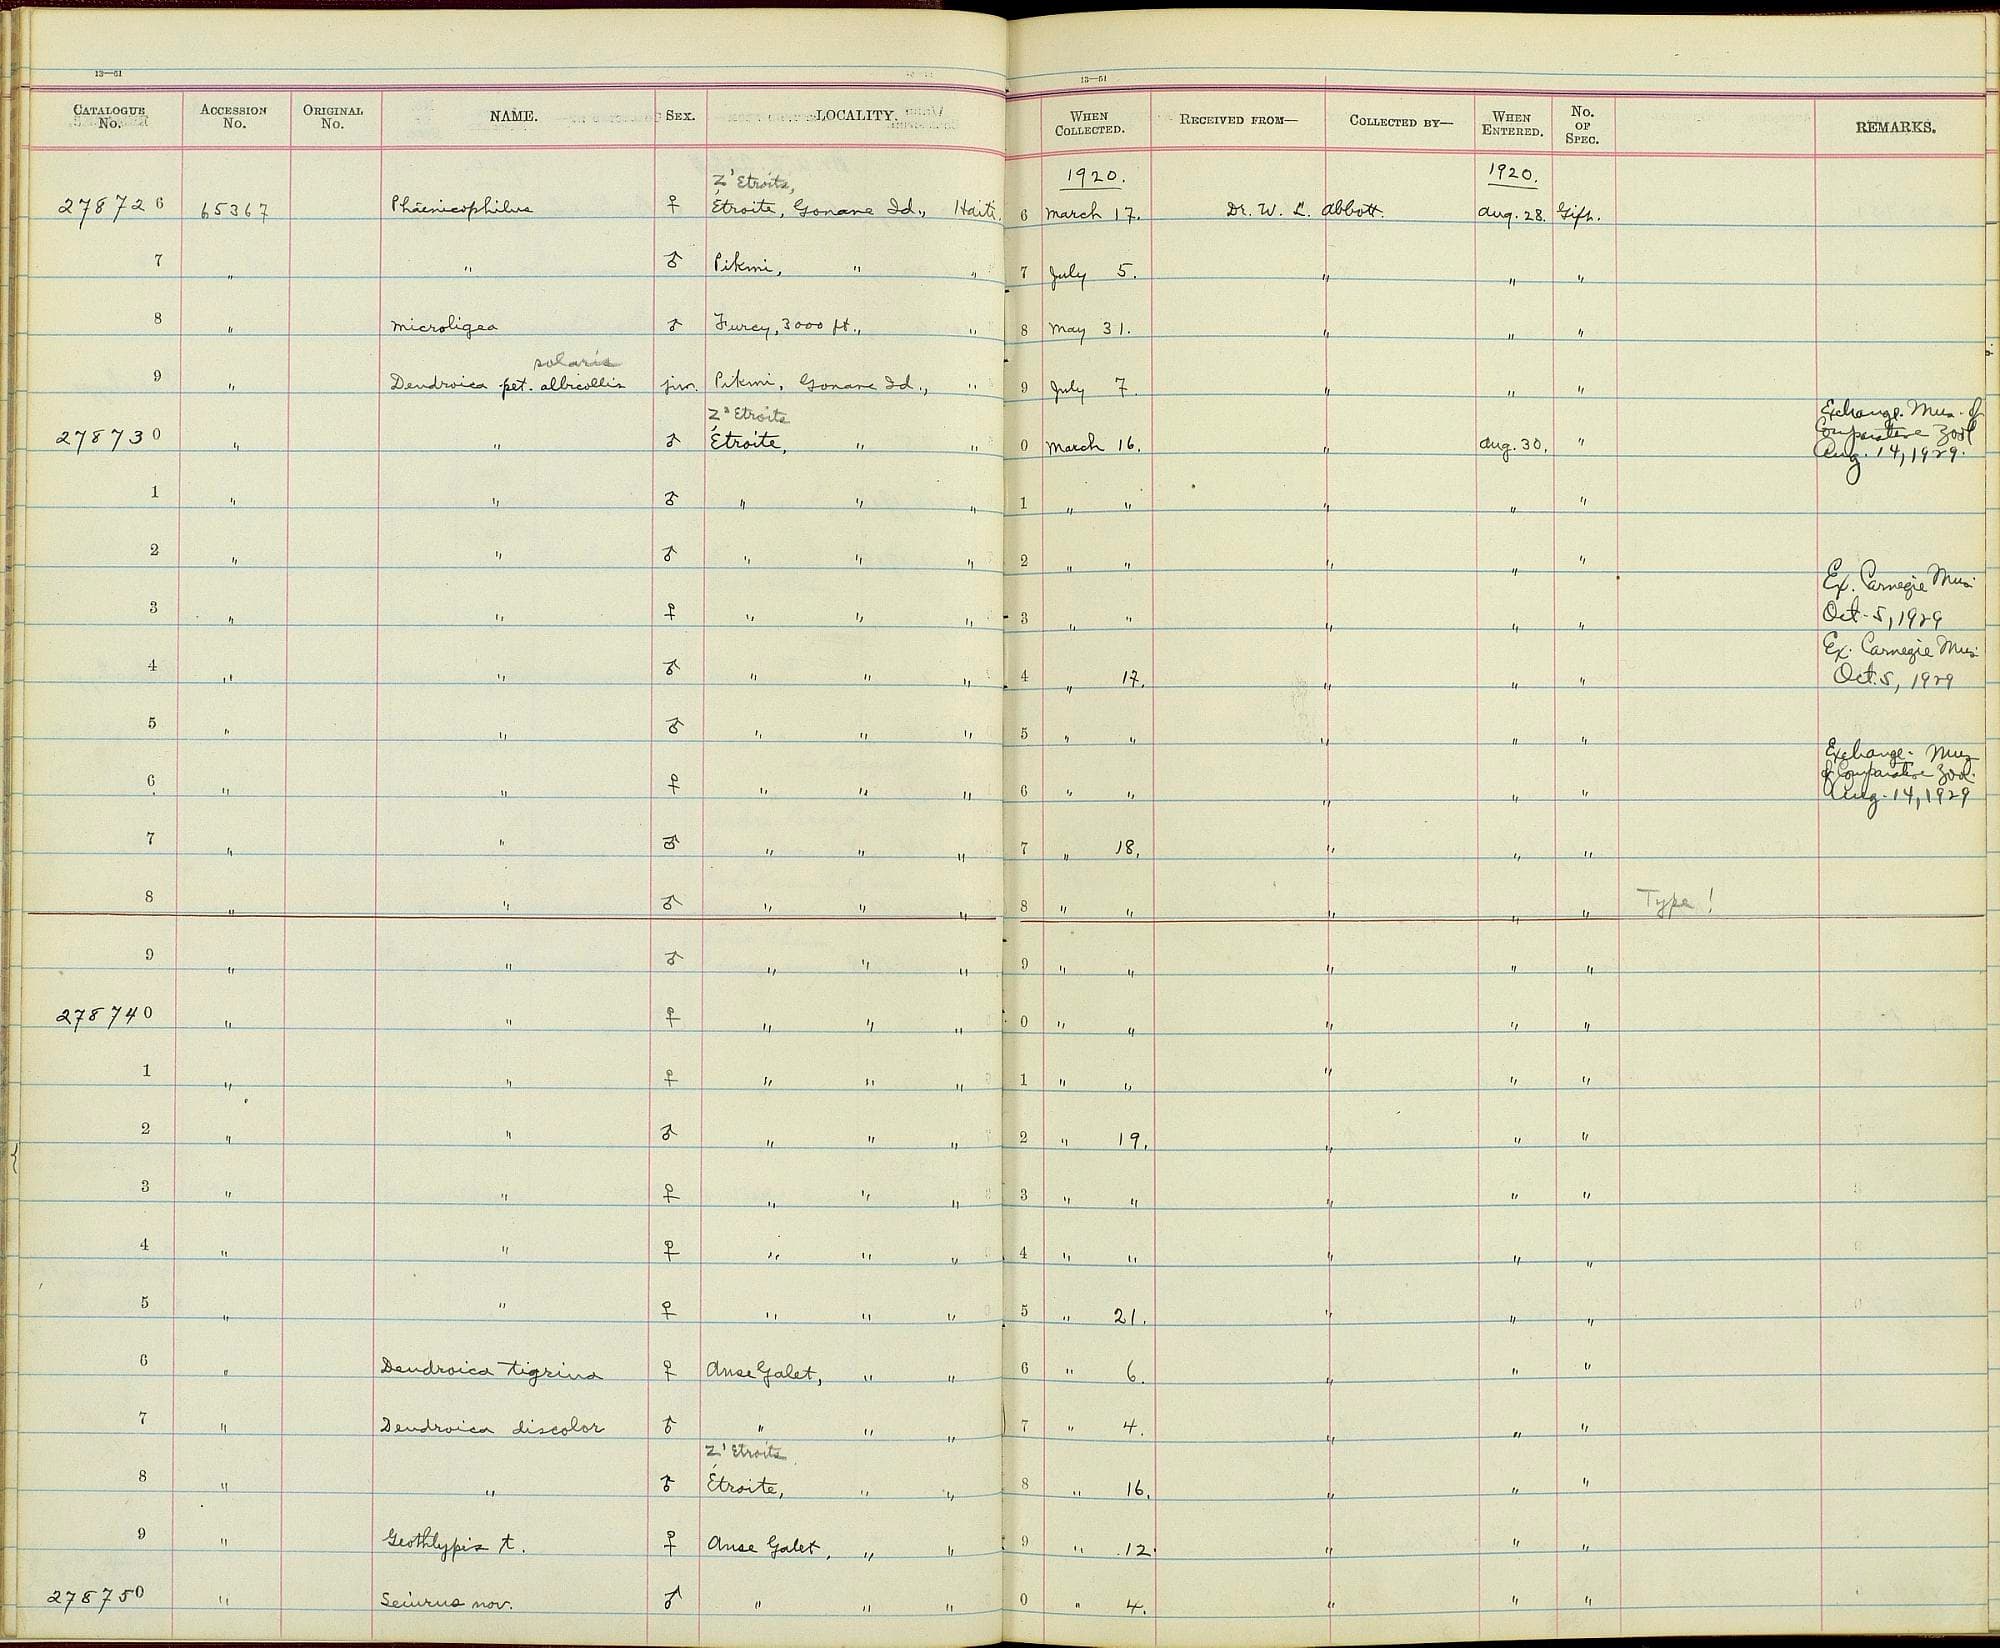 13—51 13—51
CATALOGUE No. ACCESSION No. ORIGINAL No. NAME. SEX. LOCALITY. WHEN COLLECTED. RECEIVED FROM— COLLECTED BY— WHEN ENTERED. No. OF SPEC. REMARKS.
Z' Etroits, 1920. 1920.
278726 65367 Phaenicophilus ♀ Étroite, Gonave Id., Haiti. 6 March 17. Dr. W. L. Abbott. Aug. 28. Gift.
7 " " ♂ Pikmi, " " 7 July 5. " " "
8 " Microligea ♂ Furcy, 3000 ft., " 8 May 31. " " "
solaris
9 " Dendroica pet. albicollis juv. Pikmi, Gonave Id., " 9 July 7 " " "
Z' Etroits Exchange. Mus. of
Comparative Zool
278730 " " ♂ Étroite, " " 0 March 16. " Aug. 30. " Aug. 14, 1929.
1 " " ♂ " " " 1 " " " " "
2 " " ♂ " " " 2 " " " " "
Ex. Carnegie Mus.
3 " " ♀ " " " 3 " " " " " Oct. 5, 1929
Ex. Carnegie Mus.
4 " " ♂ " " " 4 " 17. " " " Oct. 5, 1929
5 " " ♂ " " " 5 " " " " "
Exchange. Mus
of Comparative Zool.
6 " " ♀ " " " 6 " " " " " Aug. 14, 1929
7 " " ♂ " " " 7 " 18. " " "
8 " " ♂ " " " 8 " " " " " Type!
9 " " ♂ " " " 9 " " " " "
278740 " " ♀ " " " 0 " " " " "
1 " " ♀ " " " 1 " " " " "
2 " " ♂ " " " 2 " 19. " " "
3 " " ♀ " " " 3 " " " " "
4 " " ♀ " " " 4 " " " " "
5 " " ♀ " " " 5 " 21. " " "
6 " Dendroica tigrina ♀ Anse Galet, " " 6 " 6. " " "
7 " Dendroica discolor ♂ " " " 7 " 4. " " "
Z' Etroits
8 " " ♂ Étroite, " " 8 " 16. " " "
9 " Geothlypis t. ♀ Anse Galet, " " 9 " 12. " " "
278750 " Seiurus nov. ♂ " " " 0 " 4. " " "